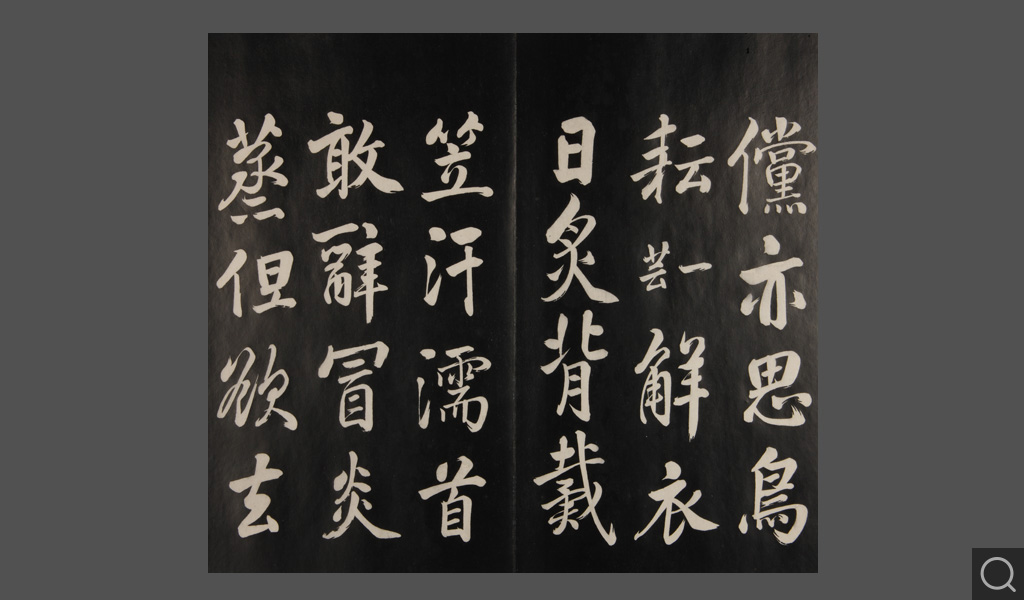 儻亦思鳥
耘一芸解衣
日炙背戴
笠汗濡首
敢辭冒炎
蒸但欲去